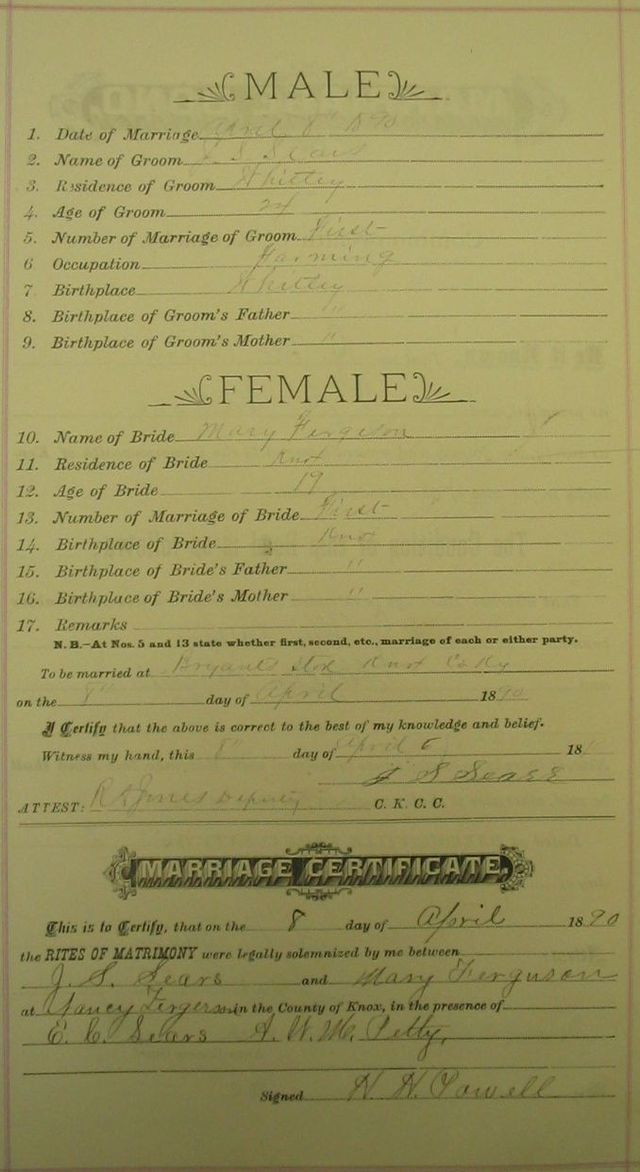 MALE
1. Date of Marriage April 8" 1890
2. Name of Groom J S Sears
3. Residence of Groom Whitley
4. Age of Groom 24
5. Number of Marriage of Groom First
6 Occupation Farming
7 Birthplace Whitley
8. Birthplace of Groom's Father "
9. Birthplace of Groom's Mother "
FEMALE
10. Name of Bride Mary Fergeson
11. Residence of Bride Knox
12. Age of Bride 17
13. Number of Marriage of Bride First
14. Birthplace of Bride Knox
15. Birthplace of Bride's Father "
16. Birthplace of Bride's Mother "
17. Remarks
N. B.—At Nos. 5 and 13 state whether first, second, etc., marriage of each or either party.
To be married at Bryants Knox Co Ky
on the 8" day of April 1890
I Certify that the above is correct to the best of my knowledge and belief.
Witness my hand, this 8" day of April 18
J S Sears
ATTEST: Jones Deputy C. K. C. C.
MARRIAGE CERTIFICATE.
This is to Certify, that on the 8 day of April 1890
the RITES OF MATRIMONY were legally solemnized by me between
J. S. Sears and Mary Ferguson
at Nancy Fergerson in the County of Knox, in the presence of
E. C. Sears A. W. M. Petty,
Signed H. H. Powell